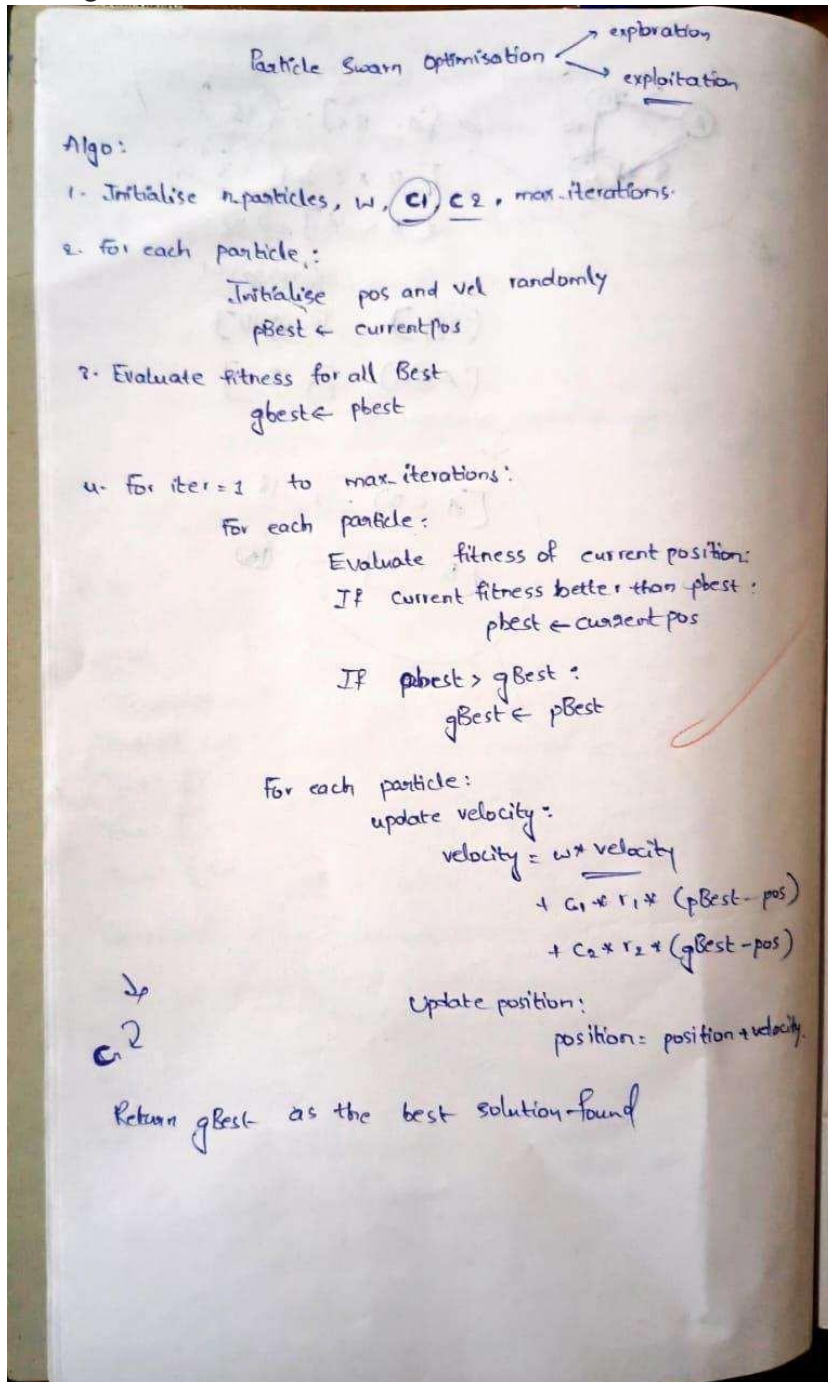 Particle Swarn Optimisation → exploration
→ exploitation
Algo:
1. Initialise n-particles, w, C1 C2, max-iterations.
2. for each particle:
Initialise pos and vel randomly
pBest ← currentpos
3. Evaluate fitness for all Best
gbest ← pbest
4. For iter = 1 to max-iterations:
For each particle:
Evaluate fitness of current position:
If current fitness better than pbest:
pbest ← current pos
If pbest > gBest:
gBest ← pBest
For each particle:
update velocity:
velocity = w * velocity
+ C1 * r1 * (pBest - pos)
+ C2 * r2 * (gBest - pos)
Update position:
position = position + velocity.
Return gBest as the best solution found